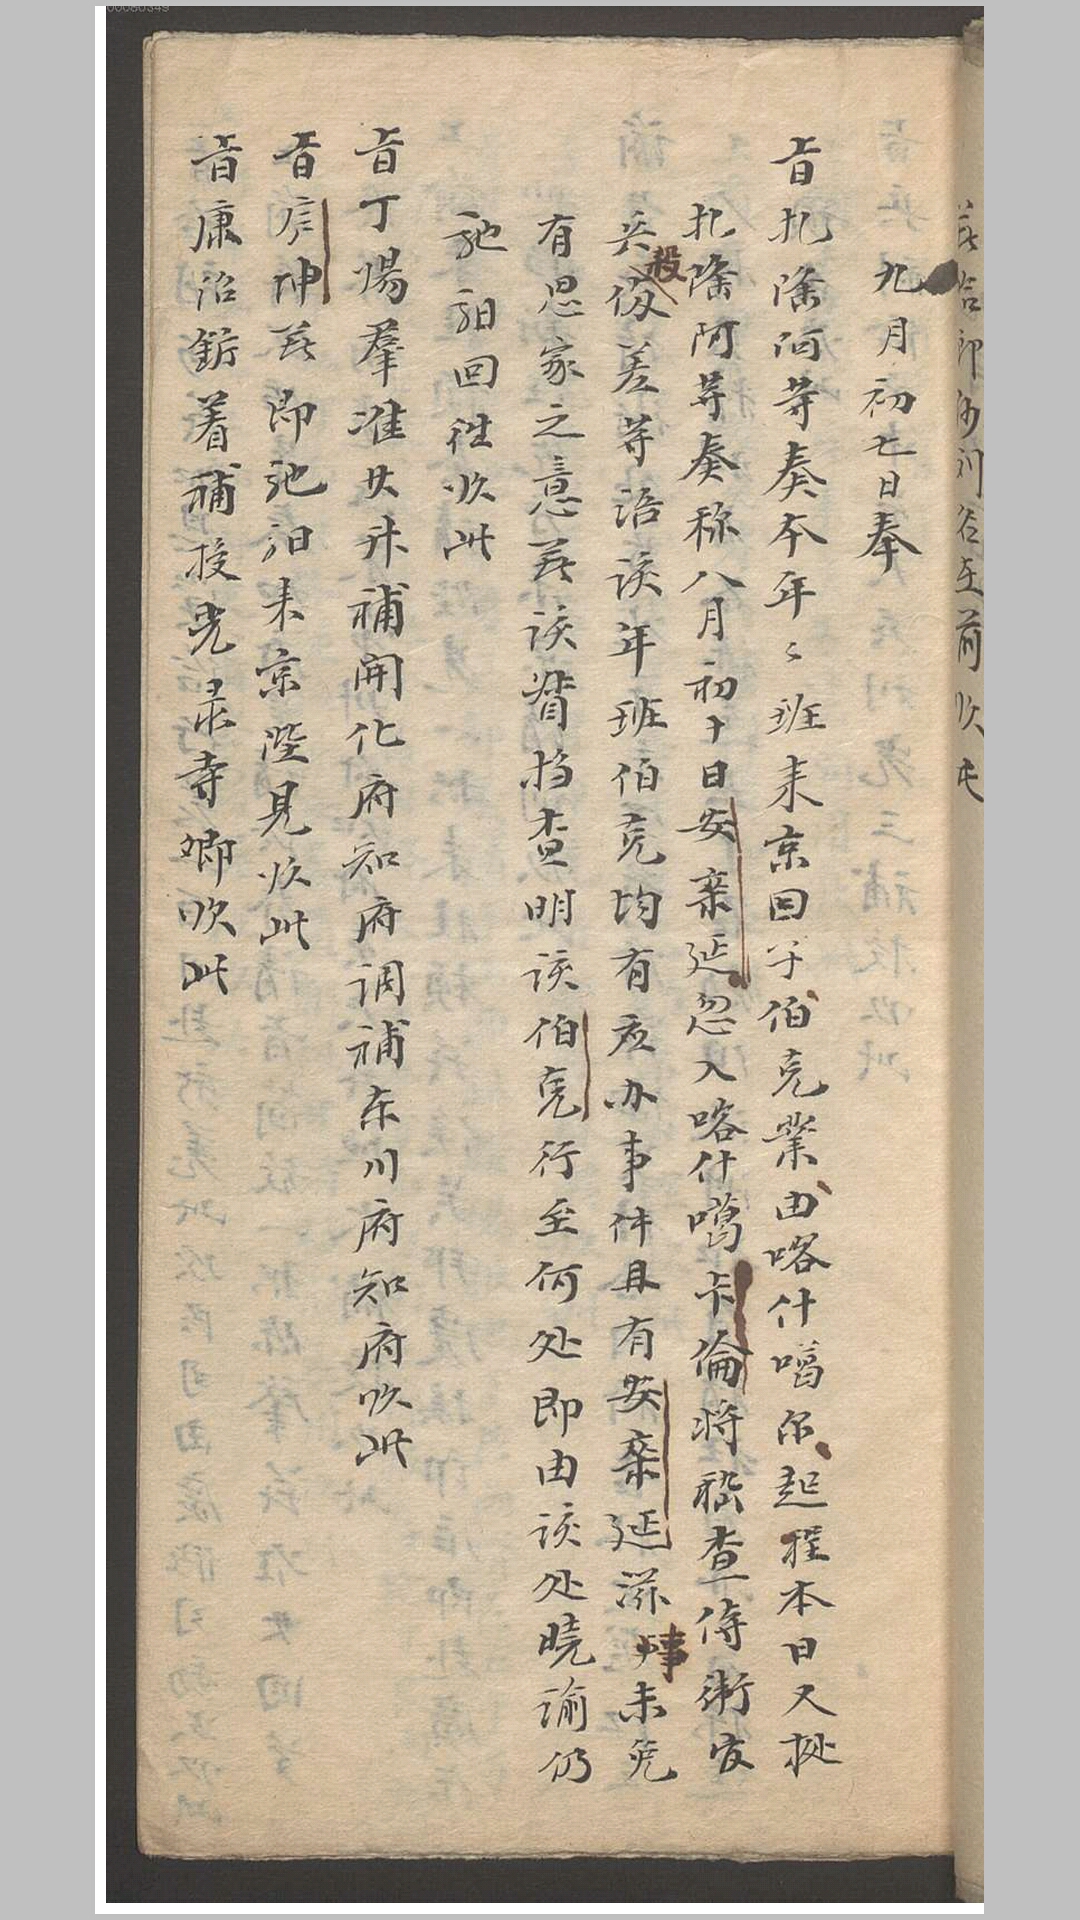 00080349
九月初七日奉
旨扎隆阿等奏本年々班来京回子伯克業由喀什噶尔起程本日又据
扎隆阿等奏称八月初十日安亲延忽入喀什噶卡倫将嵇查侍衛官
兵殺傷差等語该年班伯克均有应办事件且有安亲延滋事未免
有思家之意著该督抚查明该伯克行至何处即由该处晓谕仍
驰驲回往欽此
旨丁煬羣准其升補開化府知府调補东川府知府欽此
旨彦坤著即驰驲来京陛見欽此
旨康治鋙着補授光录寺卿欽此